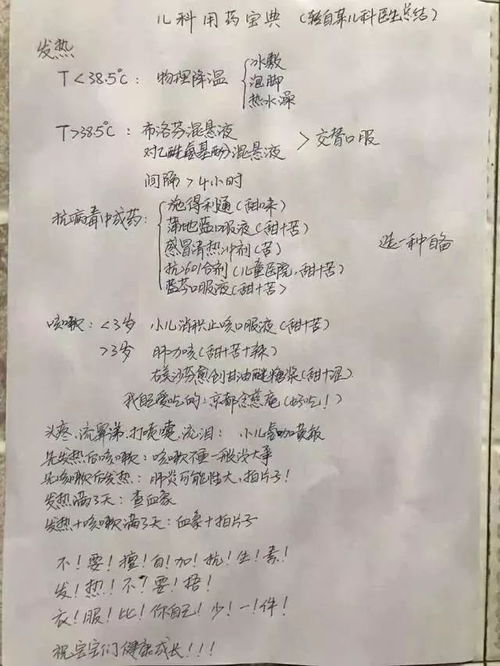 儿科用药宝典(转自某儿科医生总结)
发热
T<38.5℃: 物理降温 { 冰敷
泡脚
热水澡
T>38.5℃: 布洛芬混悬液
对乙酰氨基酚混悬液 > 交替口服
间隔>4小时
抗病毒中成药: { 施得利通(甜味)
蒲地蓝口服液(甜+苦)
感冒清热冲剂(苦)
抗601合剂(儿童医院,甜+苦)
蓝芩口服液(甜+苦)
选一种自备
咳嗽: <3岁 小儿消积止咳口服液(甜+苦)
>3岁 肺力咳(甜+苦+辣)
右美沙芬愈创甘油醚糖浆(甜+涩)
我的爱吃的:京都念慈庵(好吃!)
头疼、流鼻涕、打喷嚏、流泪: 小儿氨咖黄敏
先发热后咳嗽: 咳嗽不重一般没大事
先咳嗽后发热: 肺炎可能性大,拍片子!
发热满3天: 查血象
发热+咳嗽满3天: 血象+拍片子
不!要!擅!自!加!抗!生!素!
发!热!不!要!捂!
衣!服!比!你自己!少!一!件!
祝宝宝们健康成长!!!